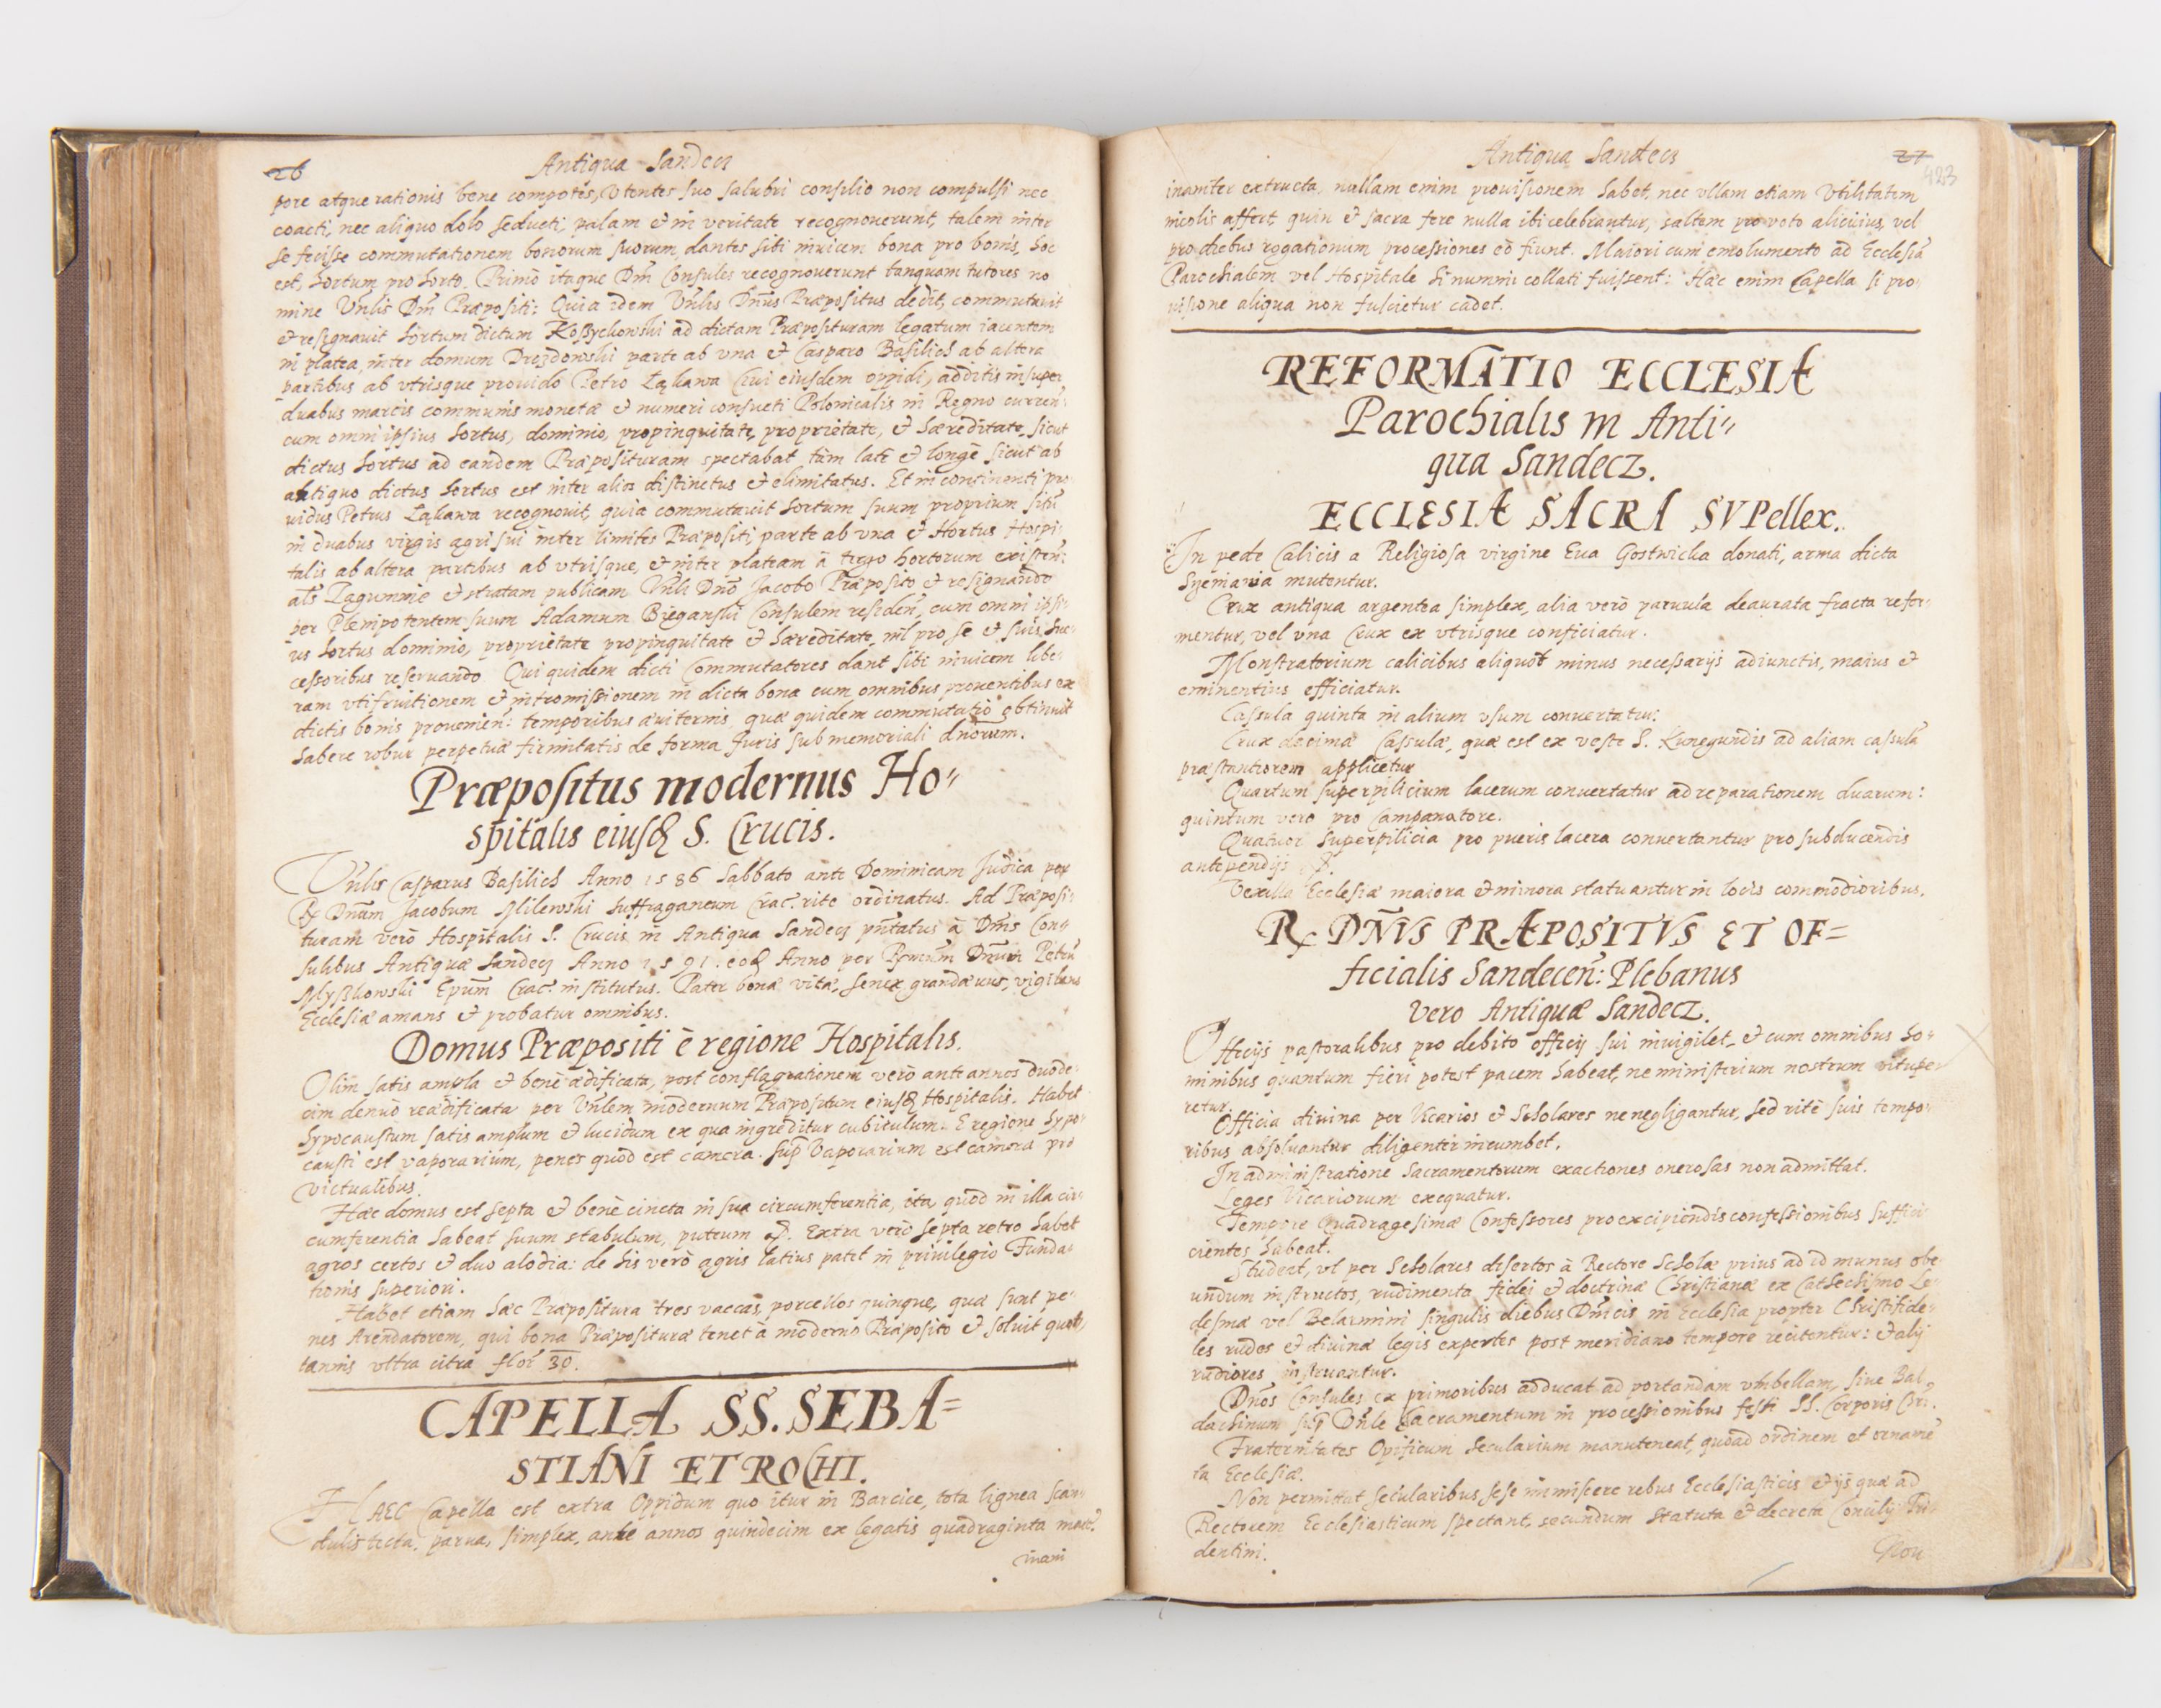 26 Antiqua Sandecz
pore atque rationis bene compotes, vtentes suo salubri consilio non compulsi nec
coacti, nec aliquo dolo seducti, palam et in veritate recognouerunt, talem inter
se fecisse commutationem bonorum suorum, dantes sibi inuicem bona pro bonis, hoc
est, hortum pro horto. Primò itaque Dni Consules recognouerunt tanquam tutores no
mine Vnlis Dni Præpositi: Quia idem Vnlis Dnus Præpositus dedit, commutauit
et resignauit hortum dictum Koszyckowski ad dictam Præposituram legatum iacentem
in platea, inter domum Drozdowski parte ab vna et Casparo Basilich ab altera
partibus ab vtrisque prouido Petro Łąkawa Ciui eiusdem oppidi, additis insuper
duabus marcis communis monetæ et numeri consueti Polonicalis in Regno curren:
cum omni ipsius hortus, dominio, propinquitate, proprietate, et hæreditate, sicut
dictus hortus ad eandem Præposituram spectabat tàm latè et longè sicut ab
antiquo dictus hortus est inter alios distinctus et elimitatus. Et in continenti pro
uidus Petrus Łąkawa recognouit, quia commutauit hortum suum proprium sitū
in duabus virgis agri sui inter limites Præpositi parte ab vna et Hortus Hospi:
talis ab altera partibus ab vtrisque, et inter plateam à tergo hortorum existen:
als Zagumnie et stratam publicam Vnli Dno Jacobo Præposito et resignando
per Plenipotentem suum Adamum Bieganski Consulem residen, cum omni ipsi:
us hortus dominio, proprietate propinquitate et hæreditate, nil pro se et suis suc:
cessoribus reseruando Qui quidem dicti Commutatores dant sibi inuicem libe:
ram vtifruitionem et intromissionem in dicta bona cum omnibus prouentibus ex
dictis bonis prouenien: temporibus æuiternis quæ quidem commutatio obtinuit
habere robur perpetuæ firmitatis de forma Juris sub memoriali dnorum.
Præpositus modernus Ho=
spitalis eiusd S. Crucis.
Vnlis Casparus Basilich Anno 1586 Sabbato ante Dominicam Judica per
Rx Dnum Jacobum Milewski Suffraganeum Crac. rite ordinatus. Ad Præposi:
turam verò Hospitalis S. Crucis in Antiqua Sandecz pñtatus à Dnis Con=
sulibus Antiquæ Sandecz Anno 1591. eod Anno per Rxmum Dnum Petrū
Myszkowski Epum Crac. institutus. Pater bonæ vitæ, senex grandæuus, vigilans
Ecclesiæ amans et probatur omnibus.
Domus Præpositi è regione Hospitalis.
Olim satis ampla et benè ædificata, post conflagrationem verò ante annos duode:
cim denuò reædificata per Vnlem modernum Præpositum eiusd Hospitalis. Habet
hypocaustum satis amplum et lucidum ex quo ingreditur cubiculum. E regione hypo:
causti est vaporarium, penes quod est camera. Sup Vaporarium est camera pro
victualibus.
Hæc domus est septa et benè cincta in sua circumferentia, ita, quod in illa cir:
cumferentia habeat suum stabulum, puteum &. Extra verò septa retro habet
agros certos et duo alodia: de his verò agris latius patet in priuilegio Funda:
tionis superiori.
Habet etiam hæc Præpositura tres vaccas, porcellos quinque, quæ sunt pe:
nes Arendatorem, qui bona Præposituræ tenet à moderno Præposito et soluit quot
tannis vltra citra flor 30.
CAPELLA SS. SEBA=
STIANI ET ROCHI.
HAEC Capella est extra Oppidum quo itur in Barcice, tota lignea scan:
dulis tecta, parua, simplex, ante annos quindecim ex legatis quadraginta marc.
inani
Antiqua Sandecz 27
423
inaniter extructa, nullam enim prouisionem habet, nec vllam etiam vtilitatem
incolis affert, quin et sacra fere nulla ibi celebrantur, saltem pro voto alicuius, vel
pro diebus rogationum processiones eò fiunt. Maiori cum emolumento ad Ecclesiā
Parochialem vel Hospitale hi nummi collati fuissent: Hæc enim Capella si pro:
uisione aliqua non fulcietur cadet.
REFORMATIO ECCLESIÆ
Parochialis in Anti=
qua Sandecz.
ECCLESIÆ SACRA SVPellex.
In pede Calicis a Religiosa virgine Eua Gostwicka donati, arma dicta
Szeniawa mutentur.
Crux antiqua argentea simplex, alia verò paruula deaurata fracta refor:
mentur, vel vna Crux ex vtrisque conficiatur.
Monstratorium calicibus aliquot minus necessarijs adiunctis, maius et
eminentius efficiatur.
Casula quinta in alium vsum conuertatur:
Crux decima Casulæ, quæ est ex veste S. Kunegundis ad aliam casulā
præstantiorem applicetur
Quartum superpilicium lacerum conuertatur ad reparationem duarum:
quintum vero pro Campanatore.
Quatuor Superpilicia pro pueris lacera conuertantur pro subducendis
antependijs &.
Vexilla Ecclesiæ maiora et minora statuantur in locis commodioribus.
Rx DNVS PRÆPOSITVS ET OF=
ficialis Sandecen: Plebanus
vero Antiquæ Sandecz.
Officijs pastoralibus pro debito officij sui inuigilet, et cum omnibus ho=
minibus quantum fieri potest pacem habeat, ne ministerium nostrum vitupe
retur.
Officia diuina per Vicarios et Scholares ne negligantur, sed ritè suis tempo:
ribus absoluantur diligenter incumbet.
In administratione Sacramentorum exactiones onerosas non admittat.
Leges Vicariorum exequatur.
Tempore Quadragesimæ Confessores pro excipiendis confessionibus suffici
cientes habeat.
Studeat, vt per Scholares disertos à Rectore Scholæ prius ad id munus obe
undum instructos, rudimenta fidei et doctrinæ Christianæ ex Cathechismo Le:
desmæ vel Belarmini singulis diebus Dnicis in Ecclesia propter Christifide:
les rudes et diuinæ legis expertes post meridiano tempore recitentur: et alij
rudiores instruantur.
Dnos Consules ex primoribus adducat ad portandam vmbellam, siue Bal
dachinum sup Vnle Sacramentum in processionibus festi SS. Corporis Chri.
Fraternitates Opificum Secularium manuteneat, quoad ordinem et orname
ta Ecclesiæ.
Non permittat secularibus sese immiscere rebus Ecclesiasticis et ijs quæ ad
Rectorem Ecclesiasticum spectant, secundum statuta et decreta Concilij Tri
dentini.